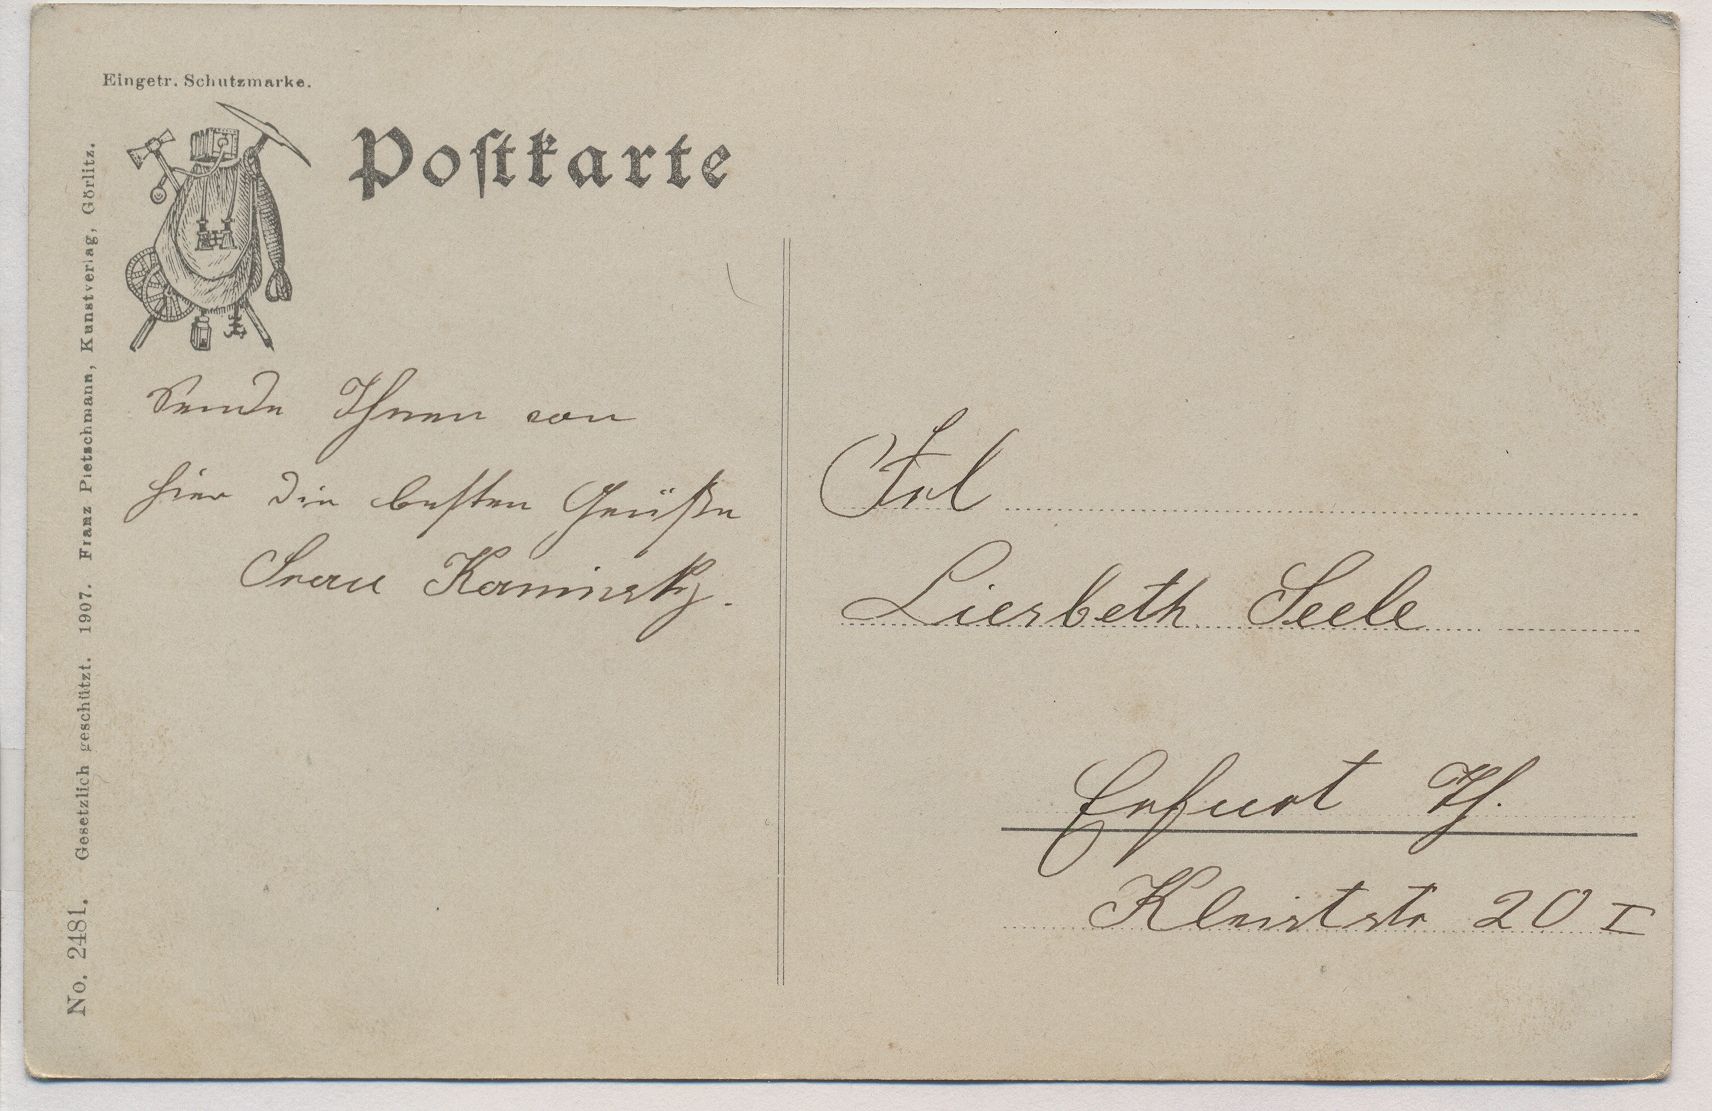 Eingetr. Schutzmarke.
Poſtkarte
Sende Ihnen von
hier die besten Grüße
Frau Kaminsky.
Frl
Liesbeth Seele
Erfurt Th.
Kleiststr 20 I
No. 2481. Gesetzlich geschützt. 1907. Franz Pietschmann, Kunstverlag, Görlitz.